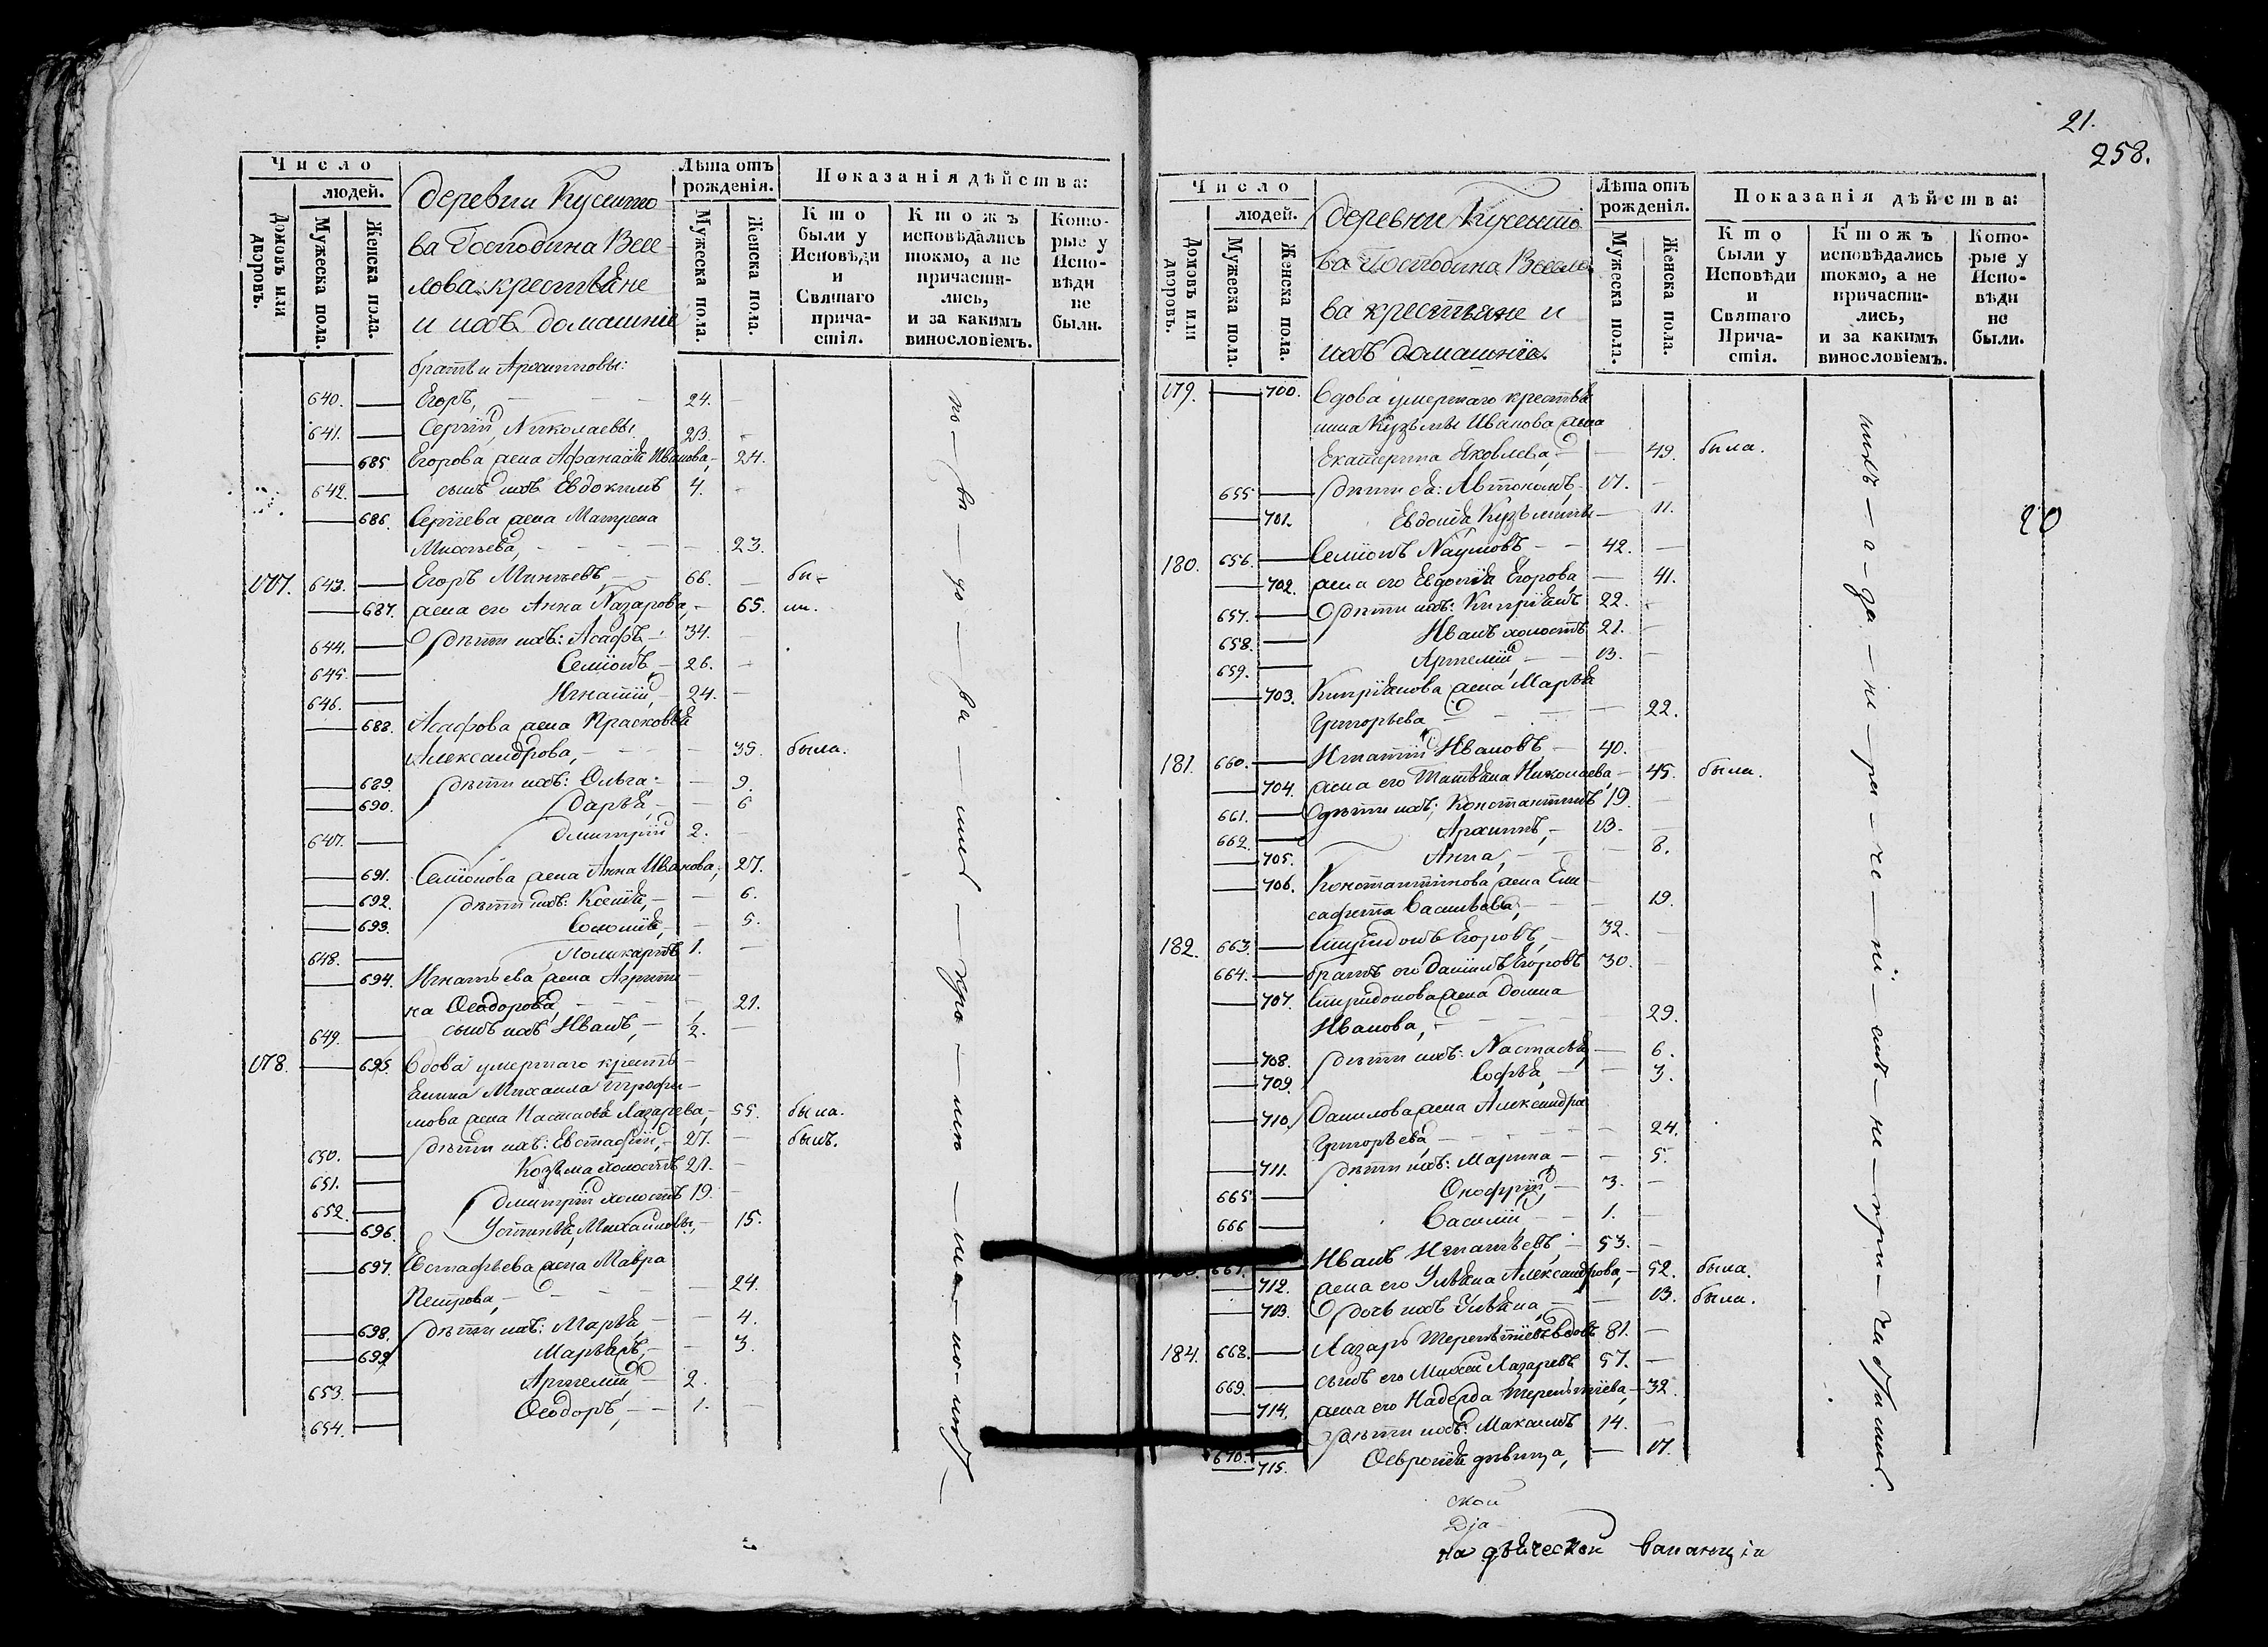 Число
людей.
Домовъ или дворовъ.
Мужеска пола.
Женска пола.
деревни Кусенто
ва Господина Весе-
лова крестьяне
и ихъ домашніе
Лѣта отъ рожденія.
Мужеска пола.
Женска пола.
Показанія дѣйства:
Кто были у Исповѣди и Святаго прича-стія.
Ктожъ исповѣдались токмо, а не причасти-лись, и за какимъ винословіемъ.
Кото-рые у Испо-вѣди не были.
братьи Архиповы:
640. — Егоръ, — 24. —
641. — Сергій, Николаевы 23. —
— 685 Егорова жена Афанасія Иванова, — 24.
642. — сынъ ихъ Евдокимъ 4. —
— 686. Сергіева жена Матрена
Михѣева, — — 23.
177. 643. — Егоръ Минѣевъ, — 66. — бы-
— 687. жена его Анна Назарова, — 65. ли.
644. — дѣти ихъ: Асафъ — 34. —
645. — Семіонъ — 26. —
646. — Игнатій, — 24. —
— 688. Асафова жена Прасковья
Александрова, — — 35. была.
— 689. дѣти ихъ: Ольга, — 9.
— 690. Дарья, — — 6
647. — Димитрій 2. —
— 691. Семіонова жена Анна Иванова, 27.
— 692. дѣти ихъ: Ксенія, — — 6.
— 693. Соломія, — 5.
648. — Поликарпъ 1. —
— 694. Игнатьева жена Агриппи-
на Ѳеодорова, — 21.
649. — сынъ ихъ Иванъ, — 2. —
178. — 695. Вдова умершаго кресть-
янина Михаила Трофи-
мова жена Настасья Лазарева, — 55. была.
650. — дѣти ихъ: Евстафій, — 27. — былъ.
651. — Козьма холостъ 21. —
652. — Димитрій холостъ 19. —
— 696. Устинья, Михайловы, — 15.
— 697. Евстафьева жена Мавра
Петрова, — — 24.
— 698. дѣти ихъ: Марья — — 4.
— 699 Марья, — — 3.
653. — Артемій — 2.
654. — Ѳеодоръ, — 1. —
21.
258.
Число
людей.
Домовъ или дворовъ.
Мужеска пола.
Женска пола.
деревни Кусенто
ва Господина Весело
ва крестьяне и
ихъ домашніе.
Лѣта отъ рожденія.
Мужеска пола.
Женска пола.
Показанія дѣйства:
Кто были у Исповѣди и Святаго Прича-стія.
Ктожъ исповѣдались токмо, а не причасти-лись, и за какимъ винословіемъ.
Кото-рые у Испо-вѣди не были.
179. — 700. Вдова умершаго крестья
нина Кузьмы Иванова жена
Екатерина Яковлева, — — 49. была.
655 — дѣти ея: Автономъ 17. —
— 701. Евдокія Кузьмины — 11.
20
180. 656. — Семіонъ Наумовъ — 42. —
— 702. жена его Евдокія Егорова, — 41.
657. — дѣти ихъ: Кипріянъ 22. —
658. — Иванъ холостъ 21. —
659. — Артемій, — 13. —
— 703. Кипріянова жена Марья
Григорьева — — 22.
181. 660. — Игнатій Ивановъ, — 40. —
— 704. жена его Татьяна Николаева, — 45. была.
661. — дѣти ихъ; Константинъ 19. —
662. — Архипъ, — 13. —
— 705. Анна, — — 8.
— 706. Константинова жена Ели
савета Васильева, — — 19.
182. 663. — Спиридонъ Егоровъ, — 32. —
664. — братъ его Даніилъ Егоровъ 30. —
— 707. Спиридонова жена Домна
Иванова, — — 29.
— 708. дѣти ихъ: Настасья, — 6.
— 709. Софья, — — 3.
— 710. Данилова жена Александра
Григорьева, — — 24.
— 711. дѣти ихъ: Марина — — 5.
665 — Онофрій, — 3. —
666 — Василій, — 1. —
667. — Иванъ Игнатьевъ, — 53. —
— 712. жена его Ульяна Александрова, — 52. была.
— 713. дочь ихъ Ульяна, — — 13. была.
184. 668. — Лазарь Терентіевъ вдовъ 81. —
669. — сынъ его Михей Лазаревъ 57. —
— 714. жена его Надежда Терентіева, — 32.
дѣти ихъ: Максимъ 14. —
670. — 715. Ѳевронія дѣвица, — 17.
на дѣяческой ваканціи